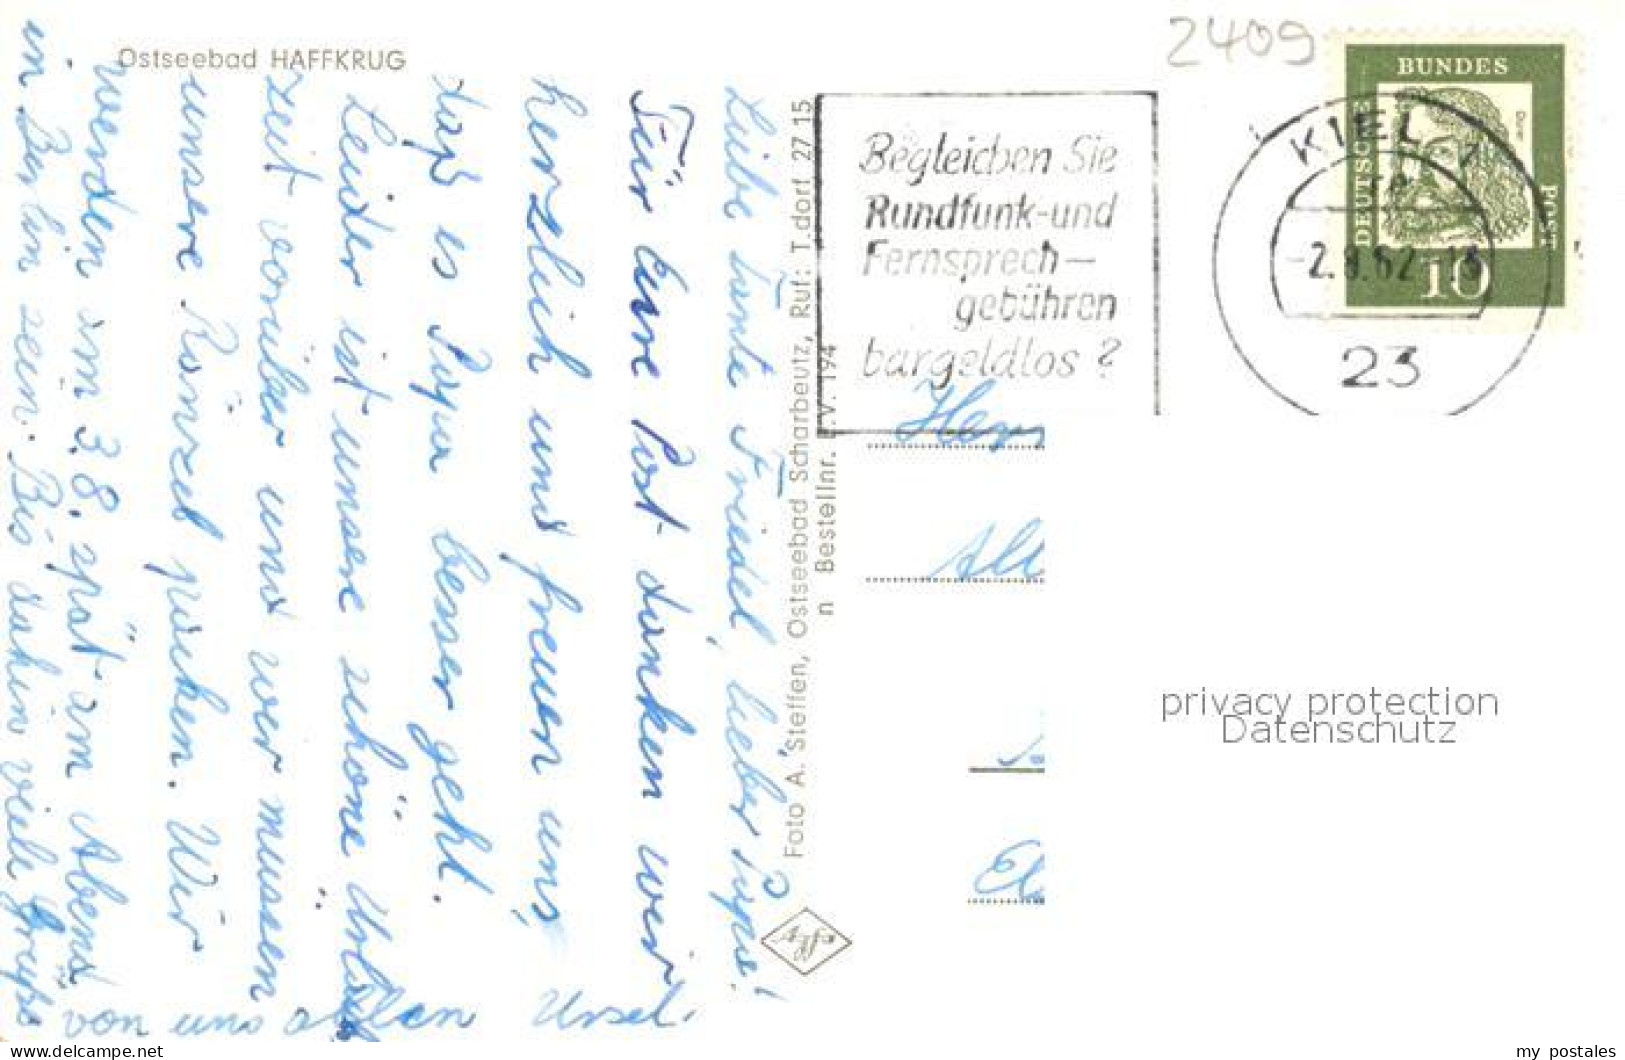 Ostseebad HAFFKRUG
Liebe Tante Friedel, lieber Papa!
Für Eure Post danken wir
herzlich und freuen uns,
daß es Papa besser geht.
Leider ist unsere schöne Urlaubs
zeit vorüber und wir müssen
unsere Ränzel packen. Wir
werden am 3.8. spät am Abend
in Berlin sein. Bis dahin viele Grüße
von uns allen Ursel.
Foto A. Steffen, Ostseebad Scharbeutz, Ruf: T.dorf 27 15
n Bestellnr. L.V. 194
2409
Begleichen Sie
Rundfunk-und
Fernsprech-
gebühren
bargeldlos?
KIEL 1
-2.8.62-13
23
DEUTSCHE
BUNDES
POST
Dürer
10
Herr
All
privacy protection
Datenschutz
www.delcampe.net
my_postales